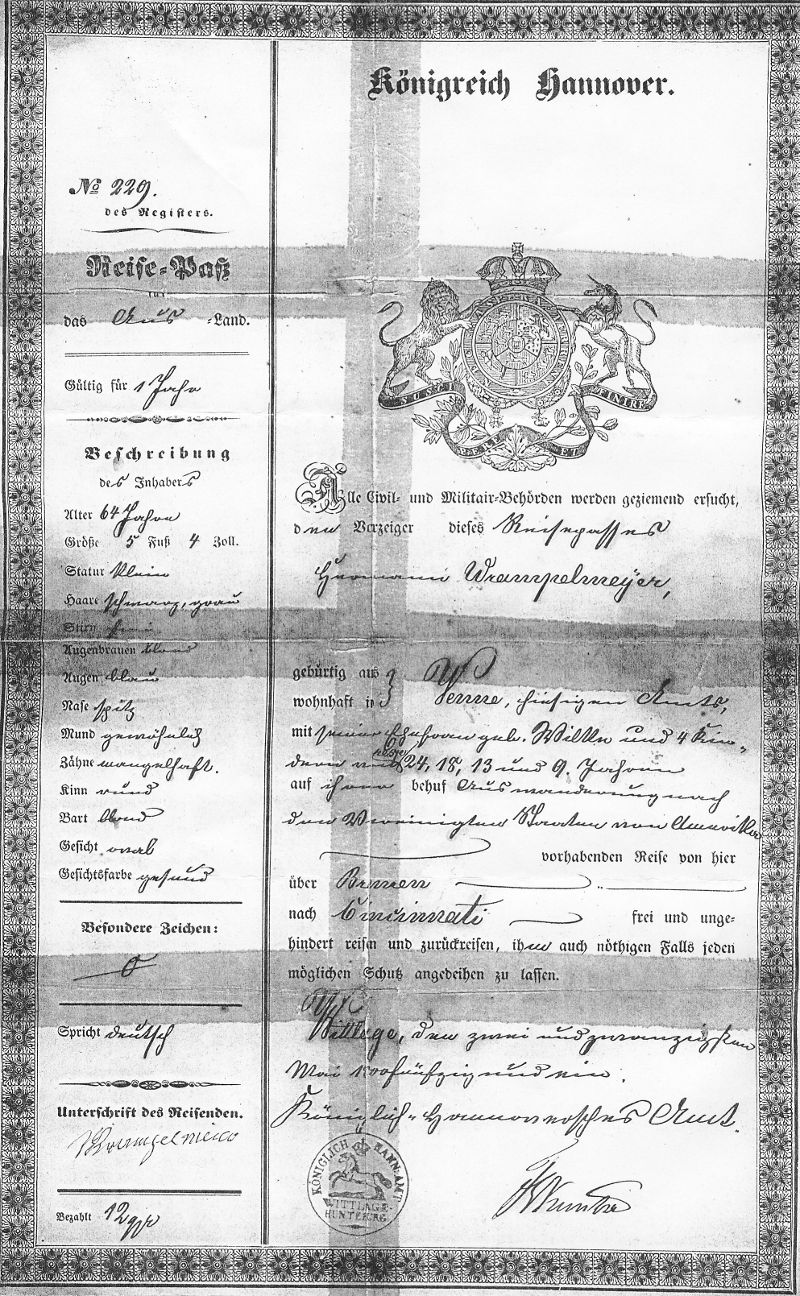 Königreich Hannover.
No 229.
des Registers.
Reise-Paß
für
das Aus-Land.
Gültig für 1 Jahr
Beschreibung
des Inhabers
Alter 64 Jahre
Größe 5 Fuß 4 Zoll.
Statur klein
Haare schwarz, grau
Stirn
Augenbrauen blond
Augen blau
Nase spitz
Mund gewöhnlich
Zähne mangelhaft.
Kinn rund
Bart blond
Gesicht oval
Gesichtsfarbe gesund
Besondere Zeichen:
0
Spricht deutsch
Unterschrift des Reisenden.
Bezahlt 12 ggr
Alle Civil- und Militair-Behörden werden geziemend ersucht,
den Vorzeiger dieses Reisepasses
Hermann Wrampelmeyer,
gebürtig aus
wohnhaft in Venne, hiesigen Amts,
mit seiner Ehefrau geb. Wilke und 4 Kin-
dern von 24, 18, 13 und 9 Jahren
auf ihrer behuf Auswanderung nach
den Vereinigten Staaten von Amerika
vorhabenden Reise von hier
über Bremen
nach Cincinnati frei und unge-
hindert reisen und zurückreisen, ihnen auch nöthigen Falls jeden
möglichen Schutz angedeihen zu lassen.
Wittlage, den zwei und zwanzigsten
Mai 18 fünfzig und ein.
Königlich-Hannoversches Amt.
KÖNIGLICH HANN: AMT
WITTLAGE-
HUNTEBURG